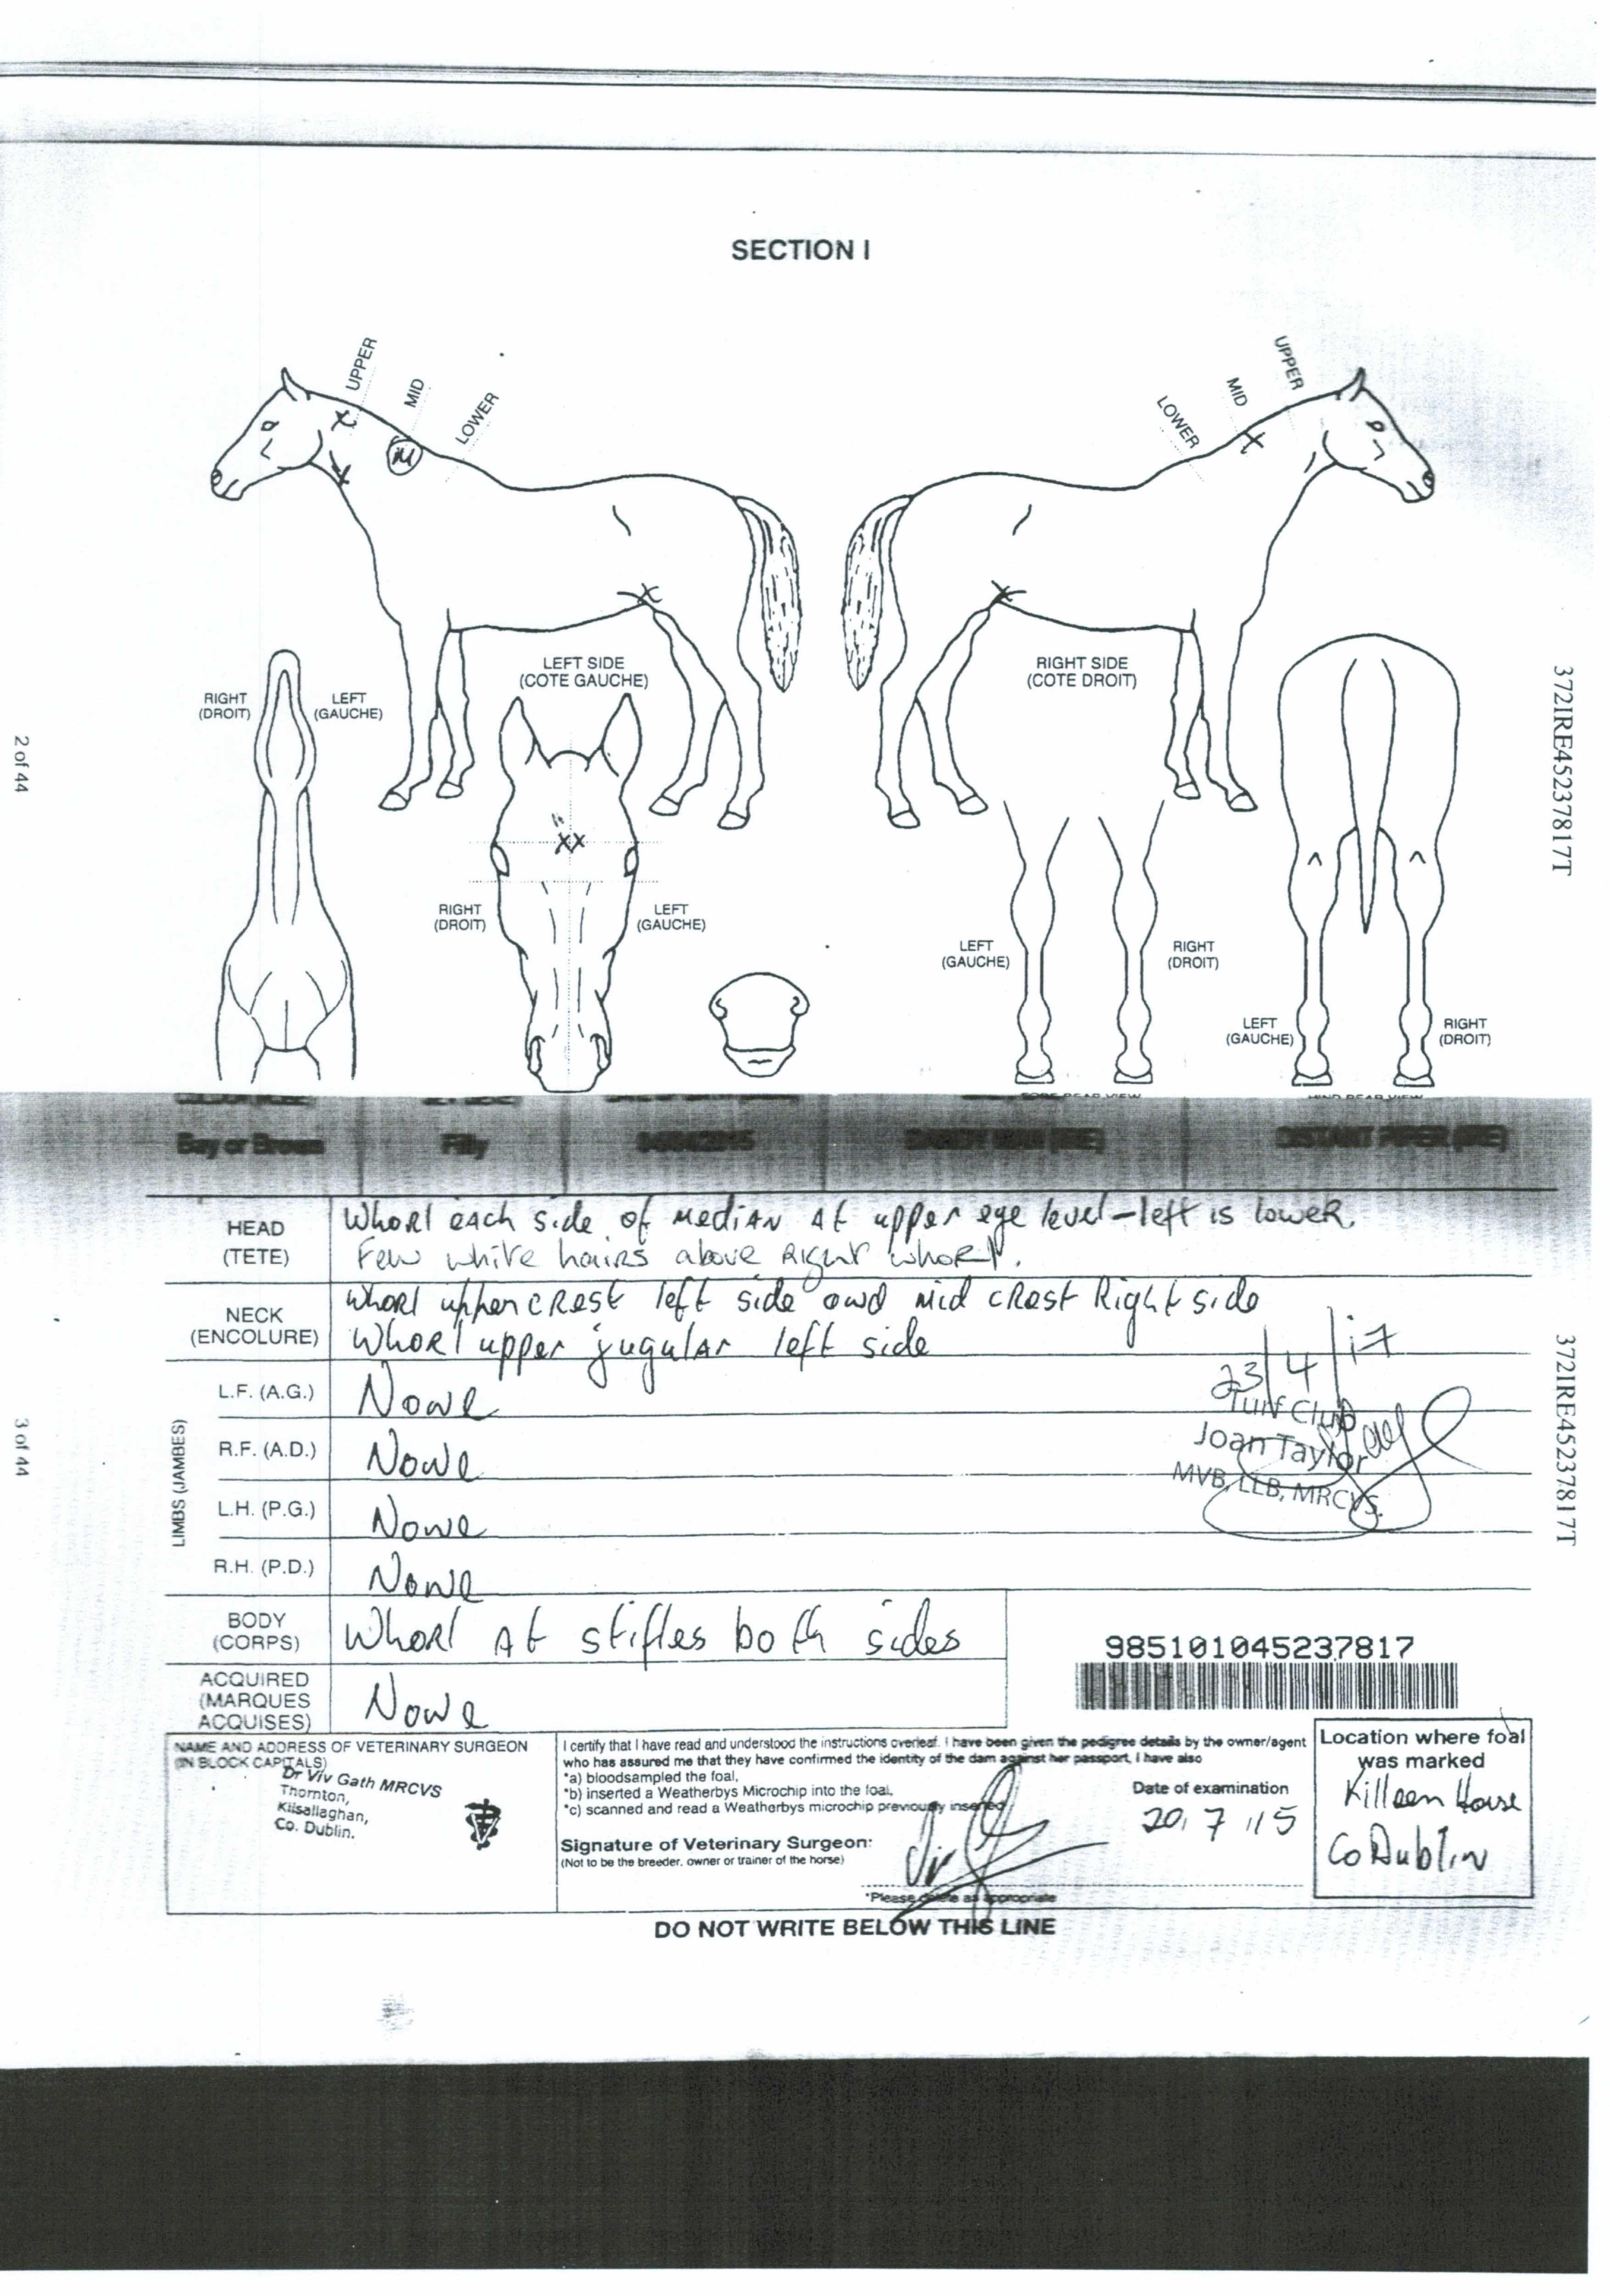 SECTION I
UPPER
MID
LOWER
UPPER
MID
LOWER
M
LEFT SIDE
(COTE GAUCHE)
RIGHT SIDE
(COTE DROIT)
RIGHT
(DROIT)
LEFT
(GAUCHE)
RIGHT
(DROIT)
LEFT
(GAUCHE)
LEFT
(GAUCHE)
RIGHT
(DROIT)
LEFT
(GAUCHE)
RIGHT
(DROIT)
2 of 44
372IRE45237817T
FORE REAR VIEW
HIND REAR VIEW
Bay or Brown Filly DISTANT PIPER (IRE)
HEAD
(TETE)
Whorl each side of median at upper eye level - left is lower.
Few white hairs above Right whorl.
NECK
(ENCOLURE)
Whorl upper crest left side and mid crest Right side
Whorl upper jugular left side
LIMBS (JAMBES)
L.F. (A.G.) None
R.F. (A.D.) None
L.H. (P.G.) None
R.H. (P.D.) None
23/4/17
Turf Club
Joan Taylor
MVB, LLB, MRCVS.
BODY
(CORPS)
Whorl at stifles both sides
ACQUIRED
(MARQUES
ACQUISES)
None
985101045237817
3 of 44
372IRE45237817T
NAME AND ADDRESS OF VETERINARY SURGEON
(IN BLOCK CAPITALS)
Dr Viv Gath MRCVS
Thornton,
Kilsallaghan,
Co. Dublin.
I certify that I have read and understood the instructions overleaf. I have been given the pedigree details by the owner/agent
who has assured me that they have confirmed the identity of the dam against her passport. I have also
*a) bloodsampled the foal,
*b) inserted a Weatherbys Microchip into the foal,
*c) scanned and read a Weatherbys microchip previously inserted
Signature of Veterinary Surgeon:
(Not to be the breeder, owner or trainer of the horse)
*Please delete as appropriate
Date of examination
20.7.15
Location where foal
was marked
Killeen House
Co Dublin
DO NOT WRITE BELOW THIS LINE